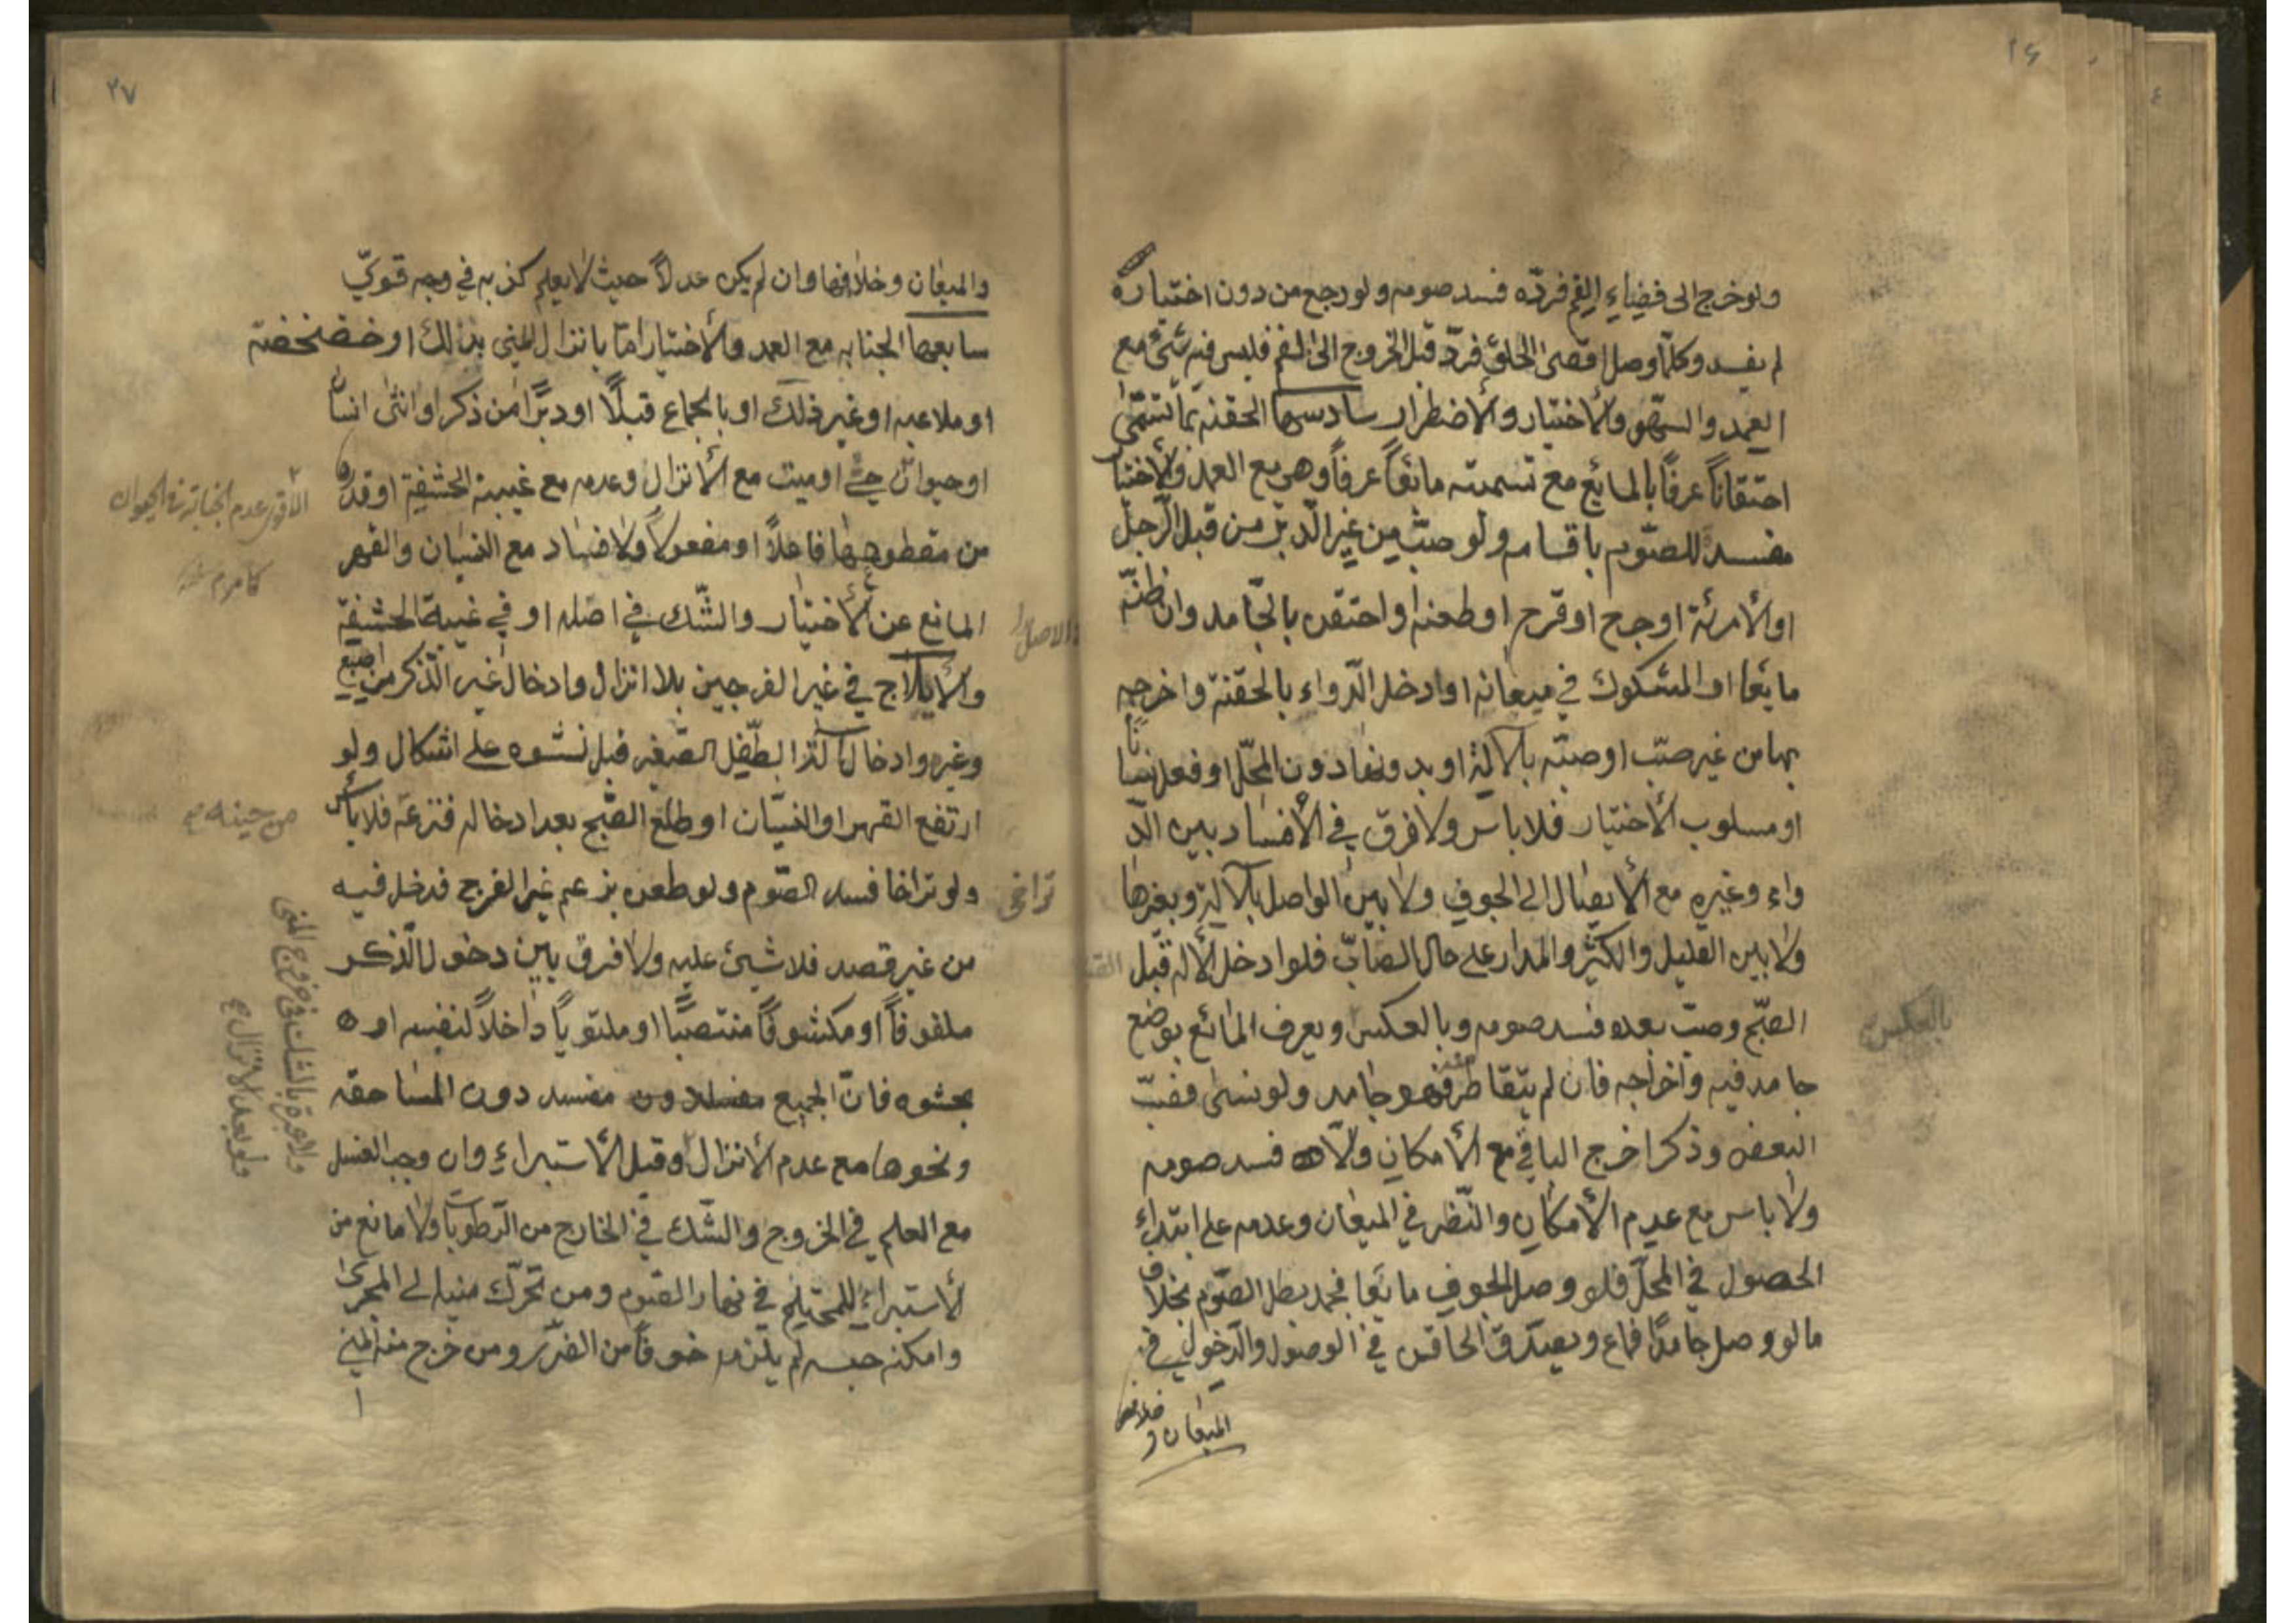 ٢۶
ولو خرج الى فضاء الفم فردّه فسد صومه ولو رجع من دون اختياره
لم يفسد وكلّما وصل اقصى الحلق فردّ قبل الخروج الى الفم فليس فيه شئ مع
العمد والسّهو والأختيار والأضطرار سادسها الحقنة بما تسمّى
احتقاناً عرفاً بالمايع مع تسميته مائعاً عرفاً وهي مع العمد والأختيار
مفسدة للصّوم باقسامه ولو صبّ من غير الدّبر من قبل الرّجل
او الأمرئة او جرح او قرح او طعنه او احتقن بالجّامد وان ظنّه
مايعا او المشكوك في ميعانه او ادخل الدّواء بالحقنة واخرجه
بها من غير صبّ او صبّه بالآلة او بدونها دون المحلّ او فعل نسيانا
او مسلوب الأختيار فلا باس ولا فرق في الأفساد بين الدّ
واء وغيره مع الأيصال الى الجوف ولا بين الواصل بالآلة وبغيرها
ولا بين القليل والكثير والمدار على حال الصّابّ فلو ادخل الآلة قبل
الصّبح وصبّ بعده فسد صومه وبالعكس ويعرف المائع بوضع
بالعكس
جامد فيه واخراجه فان لم يتقاطر منه فهو جامد ولو نسى فصبّ
البعض وذكر اخرج الباقي مع الأمكان والّا فسد صومه
ولا باس مع عدم الأمكان والنّظر في الميعان وعدمه على ابتداء
الحصول في المحلّ فلو وصل الجوف مايعا فجمد بطل الصّوم بخلاف
ما لو وصل جامدًا فماع ويصدّق الحاقن في الوصول والدّخول في
الميعان وخلافهما
٢٧
والميعان وخلافها وان لم يكن عدلاً حيث لا يعلم كذبه في وجه قويّ
سابعها الجنابه مع العمد والأختيار امّا بانزال المني بدالك او خضخضة
او ملاعبه او غير ذلك او بالجماع قبلًا او دبرًا من ذكر او انثى انسان
او حيوان حيّ او ميت مع الأنزال وعدمه مع غيبة الحشفة او قدرها
الاقوى عدم الجنابة في الحيوان
كما مرّ
من مقطوعها فاعلاً او مفعولاً ولا فساد مع النسيان والقهر
المانع عن الأختيار والشّك في اصله او في غيبة الحشفة
الاصل
والأيلاج في غير الفرجين بلا انزال وادخال غير الذّكر من اصبع
وغيره وادخال آلة الطّفل الصّغير قبل نشوه على اشكال ولو
ارتفع القهر او النسيان او طلع الصّبح بعد ادخاله فنزعه فلا بأس
من حينه
ولو تراخا فسد الصّوم ولو طعن بزعم غير الفرج فدخل فيه
تراخى
من غير قصد فلا شيئ عليه ولا فرق بين دخول الذّكر
ملفوفاً او مكشوفاً منتصبًا او ملتوياً داخلاً لنفسه او
بحشوه فانّ الجميع مفسد دون المساحقه
ولا عبرة بالشك في خروج المنى
ولو بعد الانزال
ونحوها مع عدم الأنزال وقبل الأستبراء وان وجب الغسل
مع العلم في الخروج والشّك في الخارج من الرّطوبات ولا مانع من
الأستبراء للمحتلم في نهار الصّوم ومن تحرّك منيه الى المجرى
وامكنه حبسه لم يلزمه خوفاً من الضّرر ومن خرج منه المني